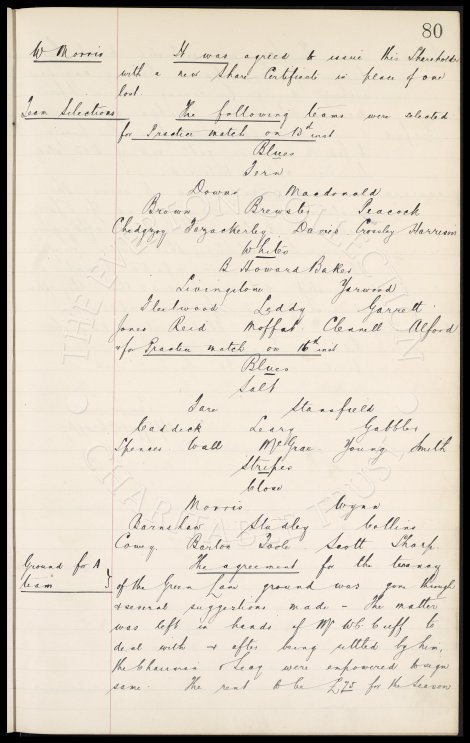 80
W Morris It was agreed to issue this Shareholder
with a new Share Certificate in place of one
lost.
Team Selections The following teams were selected
for Practice match on 13th inst
Blues
Fern
Downs Macdonald
Brown Brewster Peacock
Chedgzoy Fazackerley Davies Crossley Harrison
Whites
B Howard Baker
Livingstone Yarwood
Fleetwood Leddy Garrett
Jones Reid Moffat Clennell Alford
& for Practice match on 16th inst
Blues
Salt
Tare Stansfield
Caddick Leary
Spencer Wall McGrae Young Smith
Stripes
Close
Morris Wynn
Barnshaw Collins
Barton Toole Scott Sharp.
Ground for A The agreement for the tenancy
team of the Green Lane ground was gone through
& several suggestions made - The matter
was left in hands of Mr W C Cuff to
deal with & after being settled by him,
the Chairman & Secy were empowered to sign
same. The rent to be £75 for the season
THE EVERTON COLLECTION
CHARITABLE TRUST